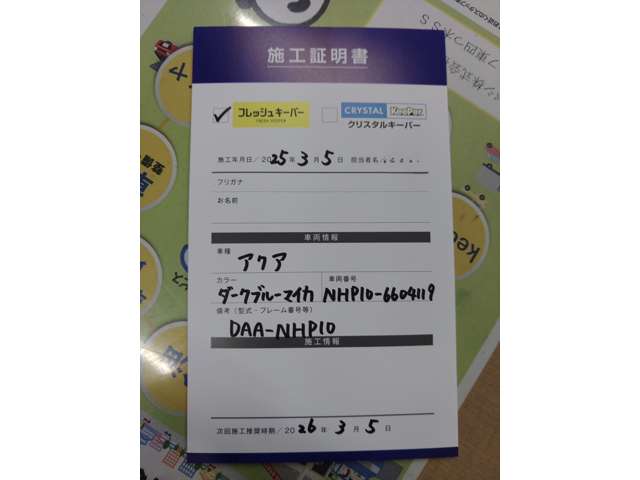 施工証明書
フレッシュキーパー
FRESH KEEPER
CRYSTAL KeePer
クリスタルキーパー
施工年月日/2025年3月5日 担当者名
フリガナ
お名前
車両情報
車種
アクア
カラー
車両番号
ダークブルーマイカ NHP10-6604119
備考(型式・フレーム番号等)
DAA-NHP10
施工情報
次回施工推奨時期/2026年3月5日